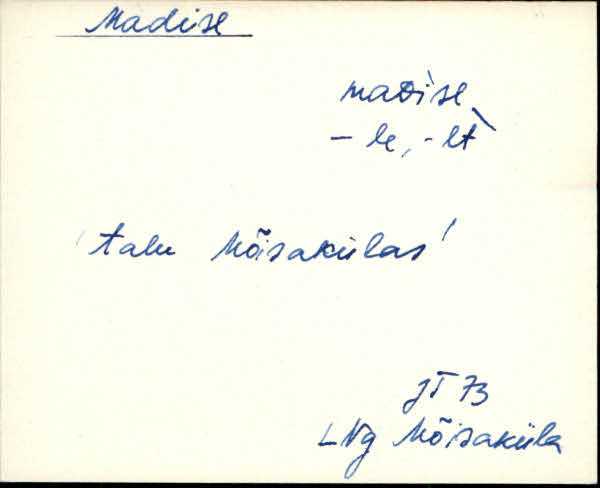 Madise
maDise
- le, - lt
'talu Mõisakülas'
JT 73
LNg Mõisaküla